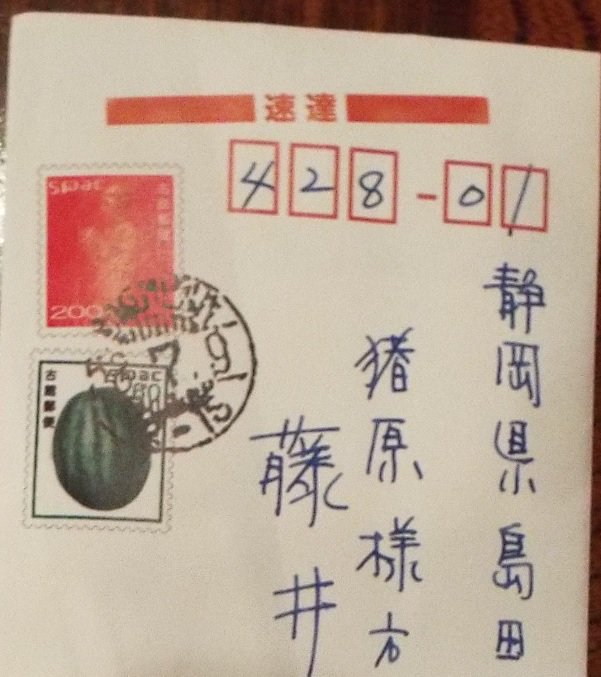 速達
428-01
静岡県島田
猪原様方
藤井
spac
200
古趣郵便